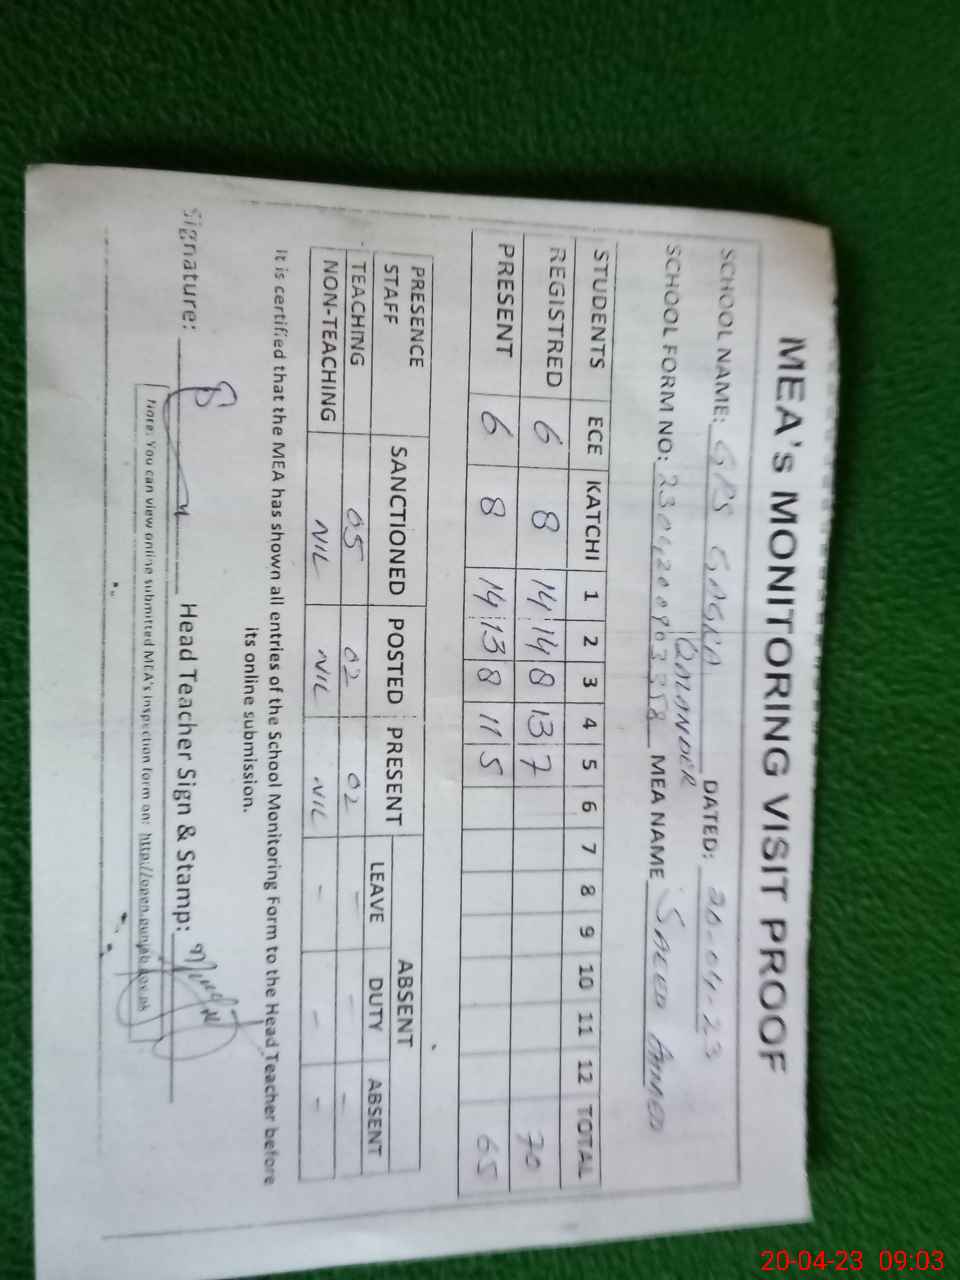 MEA's MONITORING VISIT PROOF
SCHOOL NAME: GPS GAGNA QALANDER DATED: 20-04-23
SCHOOL FORM NO: MEA NAME SAEED AHMED
STUDENTS ECE KATCHI 1 2 3 4 5 6 7 8 9 10 11 12 TOTAL
REGISTRED 6 8 14 14 8 13 7 70
PRESENT 6 8 14 13 8 11 5 65
PRESENCE STAFF SANCTIONED POSTED PRESENT ABSENT
LEAVE DUTY ABSENT
TEACHING 05 02 02 - - -
NON-TEACHING NIL NIL NIL - - -
It is certified that the MEA has shown all entries of the School Monitoring Form to the Head Teacher before
its online submission.
Signature: Head Teacher Sign & Stamp:
Note: You can view online submitted MEA's inspection form on: http://open.punjab.gov.pk
20-04-23 09:03